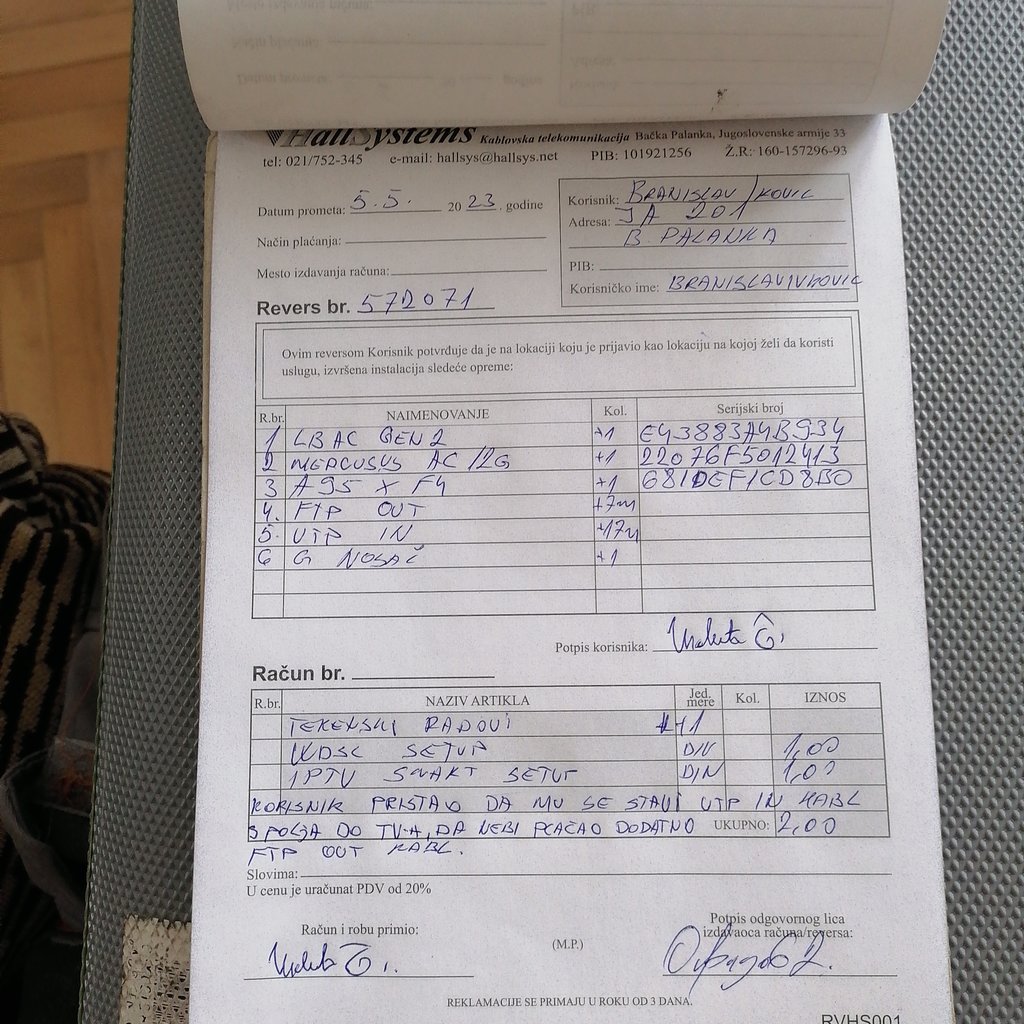 HallSystems Kablovska telekomunikacija Bačka Palanka, Jugoslovenske armije 33
tel: 021/752-345 e-mail: hallsys@hallsys.net PIB: 101921256 Ž.R.: 160-157296-93
Datum prometa: 5.5. 2023. godine
Način plaćanja:
Mesto izdavanja računa:
Korisnik: BRANISLAV IVKOVIC
Adresa: JA 201
B. PALANKA
PIB:
Korisničko ime: BRANISLAVIVKOVIC
Revers br. 572071
Ovim reversom Korisnik potvrđuje da je na lokaciji koju je prijavio kao lokaciju na kojoj želi da koristi
uslugu, izvršena instalacija sledeće opreme:
R.br. NAIMENOVANJE Kol. Serijski broj
1 LB AC GEN2 +1 E43883A4B934
2 MERCUSYS AC12G +1 22076F5012413
3 A95 X F4 +1 681DEF1CD8B0
4. FTP OUT +7m
5. UTP IN +17m
6 G NOSAČ +1
Potpis korisnika:
Račun br.
R.br. NAZIV ARTIKLA Jed. mere Kol. IZNOS
TERENSKI RADOVI +1
WDSL SETUP DIN 1,00
IPTV SMART SETUP DIN 1,00
KORISNIK PRISTAO DA MU SE STAVI UTP IN KABL
SPOLJA DO TV-A, DA NEBI PLAĆAO DODATNO UKUPNO: 2,00
FTP OUT KABL.
Slovima:
U cenu je uračunat PDV od 20%
Račun i robu primio:
(M.P.)
Potpis odgovornog lica
izdavaoca računa/reversa:
REKLAMACIJE SE PRIMAJU U ROKU OD 3 DANA.
RVHS001